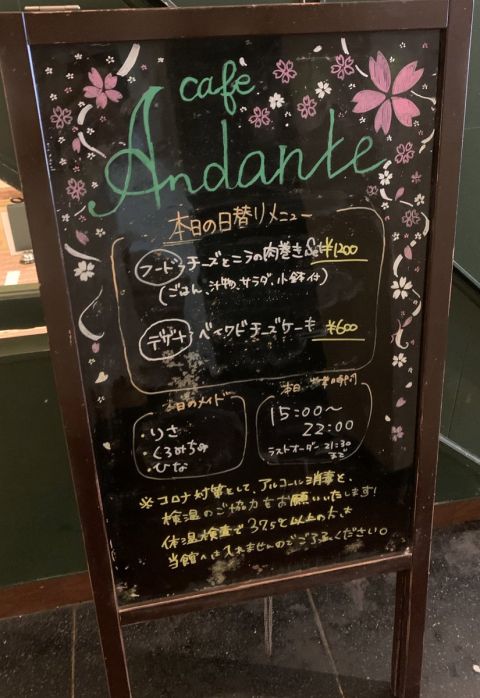 cafe
Andante
本日の日替りメニュー
フード チーズとニラの肉巻き Set ¥1200
(ごはん、汁物、サラダ、小鉢付)
デザート ベイクドチーズケーキ ¥600
本日のメイド
・りさ
・くるみちゃ
・ひな
本日
15:00〜
22:00
ラストオーダー 21:30
まで
※コロナ対策として、アルコール消毒と、
検温のご協力をお願いいたします!
体温検査で37.5℃以上の方は
当館へは入れませんのでご了承ください。